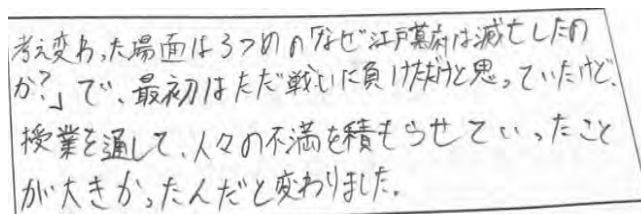 考え変わった場面は3つめの「なぜ江戸幕府は滅亡したの
か?」で、最初はただ戦いに負けただけと思っていたけど、
授業を通して、人々の不満を積もらせていったこと
が大きかったんだと変わりました。